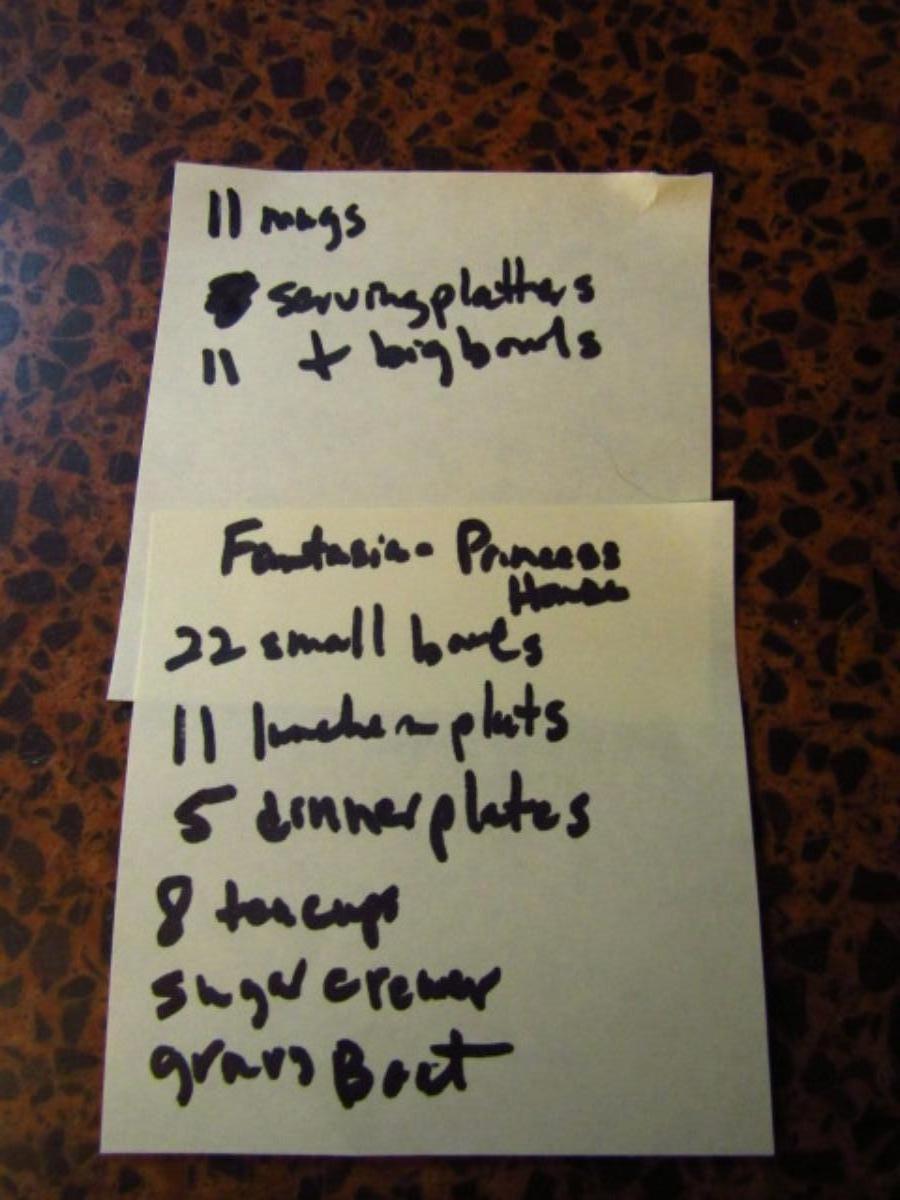 11 mugs
serving platters
11 + big bowls
Fantasia - Princess
House
22 small bowls
11 luncheon plats
5 dinner plates
8 teacups
sugar creamer
gravy Boat